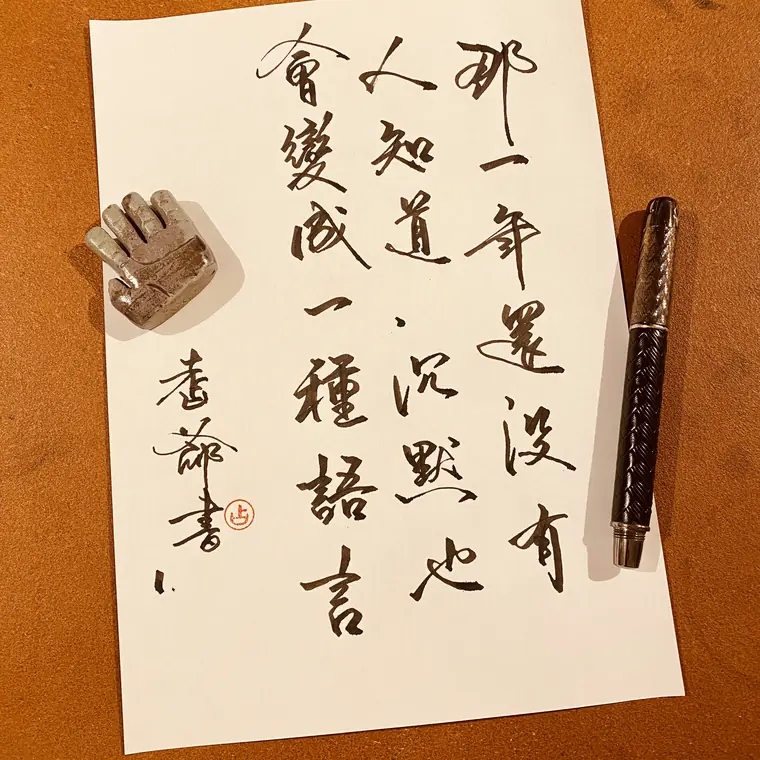 那一年還沒有
人知道，沉默也
會變成一種語言
書
1.